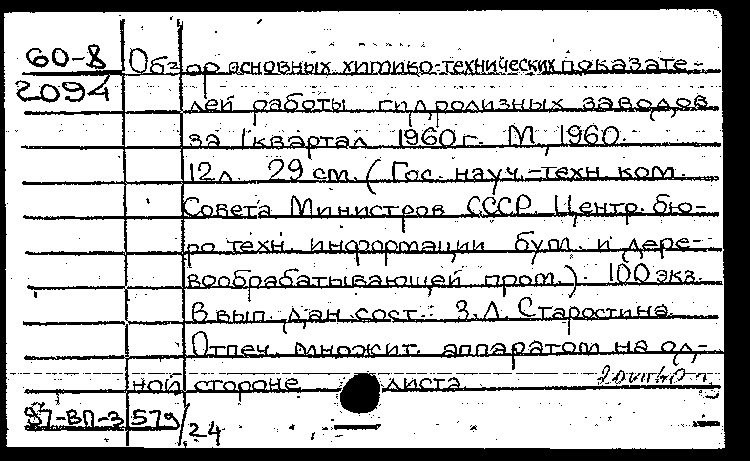 60-8 Обзор основных химико-технических показате-
2094 лей работы гидролизных заводов
за I квартал 1960 г. М, 1960.
12 л. 29 см. (Гос. науч.-техн. ком.
Совета Министров СССР. Центр. бю-
ро техн. информации бум. и дере-
вообрабатывающей пром.). 100 экз.
В вып. дан. сост.: З.Л. Старостина
Отпеч. множит. аппаратом на од-
ной стороне листа
87-ВП-3 579/24